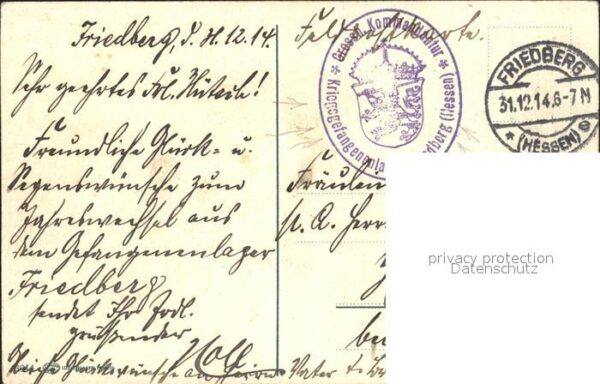 Friedberg, d. 31.12.14.
Sehr geehrtes Frl.
Freundliche Glück- u.
Segenswünsche zum
Jahreswechsel aus
dem Gefangenenlager
Friedberg
sendet Ihr
grüßender
Glückwünsche an Herrn Vater
Feldpostkarte.
Grossh. Kommandantur
* Kriegsgefangenenla
dberg (Hessen) *
FRIEDBERG
31.12.14.6-7N
* (HESSEN)
Fräulein
p. A. Herrn
privacy protection
Datenschutz